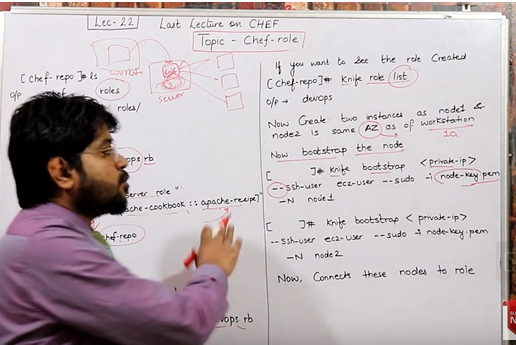 Lec-22 Last Lecture on CHEF
Topic - Chef-role
workst
role
server
[chef-repo]# ls
o/p roles
roles/
ops rb
server role"
ache-cookbook :: apache-recipe]"
chef-repo
ops rb
If you want to see the role Created
[chef-repo]# Knife role list
o/p → devops
Now Create two instances as node1 &
node2 is same AZ as of workstation
1a
Now bootstrap the node
[ ]# Knife bootstrap <private-ip>
--ssh-user ec2-user --sudo -i node-key.pem
-N node1
[ ]# Knife bootstrap <private-ip>
--ssh-user ec2-user --sudo -i node-key.pem
-N node2
Now, Connects these nodes to role